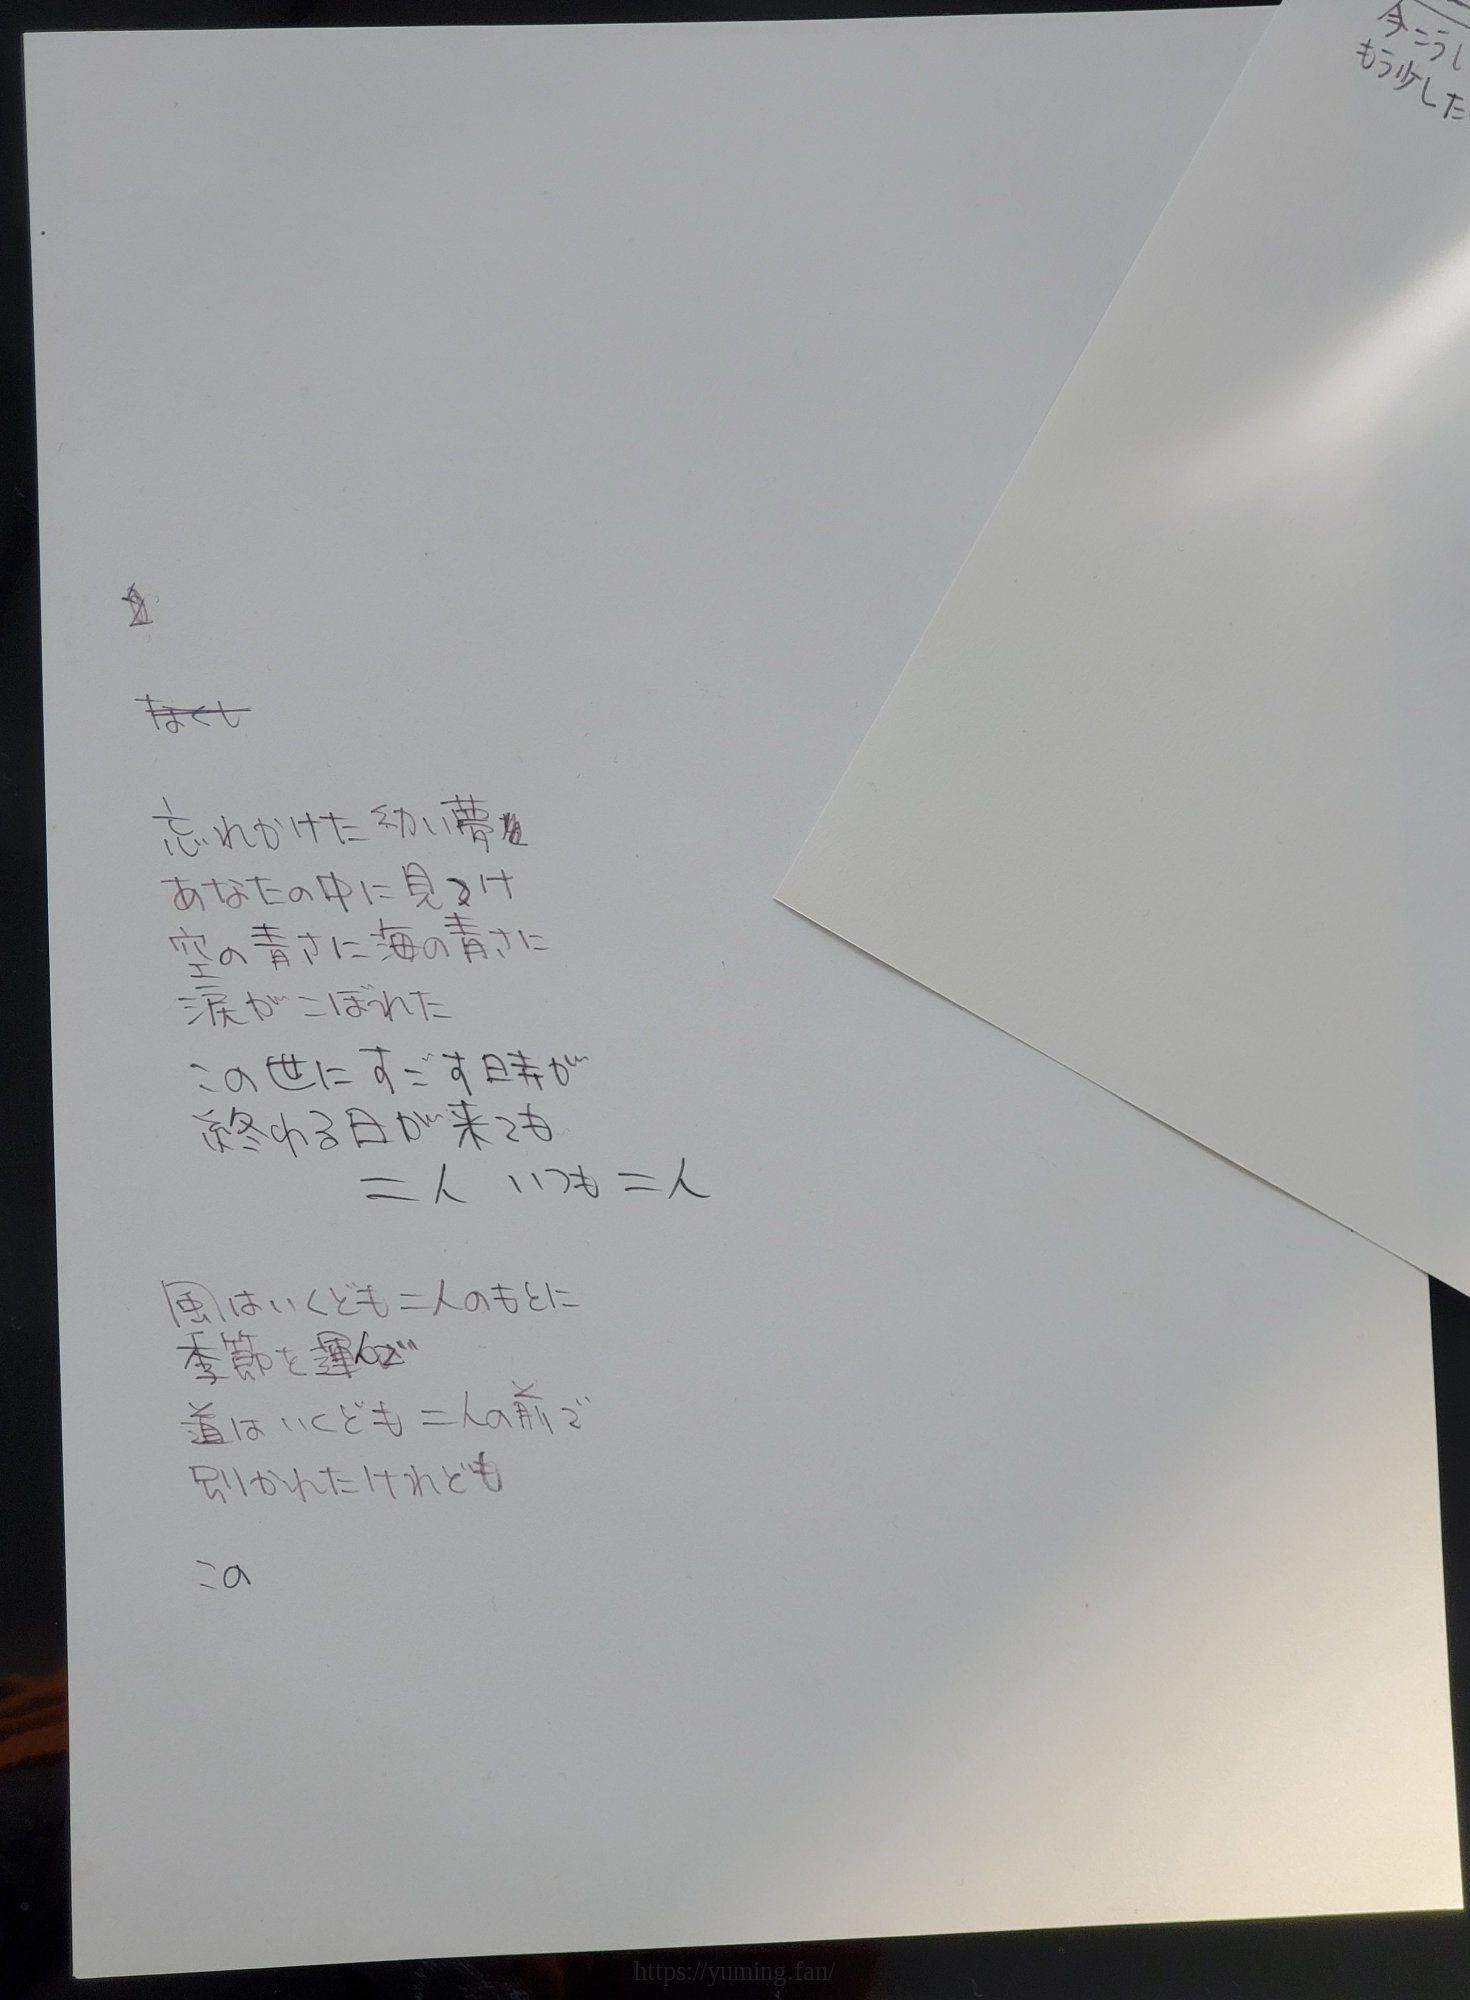 今こうし
もう少した
なくし
忘れかけた幼い夢
あなたの中に見つけ
空の青さに海の青さに
涙がこぼれた
この世にすごす時が
終わる日が来ても
二人 いつも二人
風はいくども二人のもとに
季節を運んで
道はいくども二人の前で
別かれたけれども
この
https://yuming.fan/